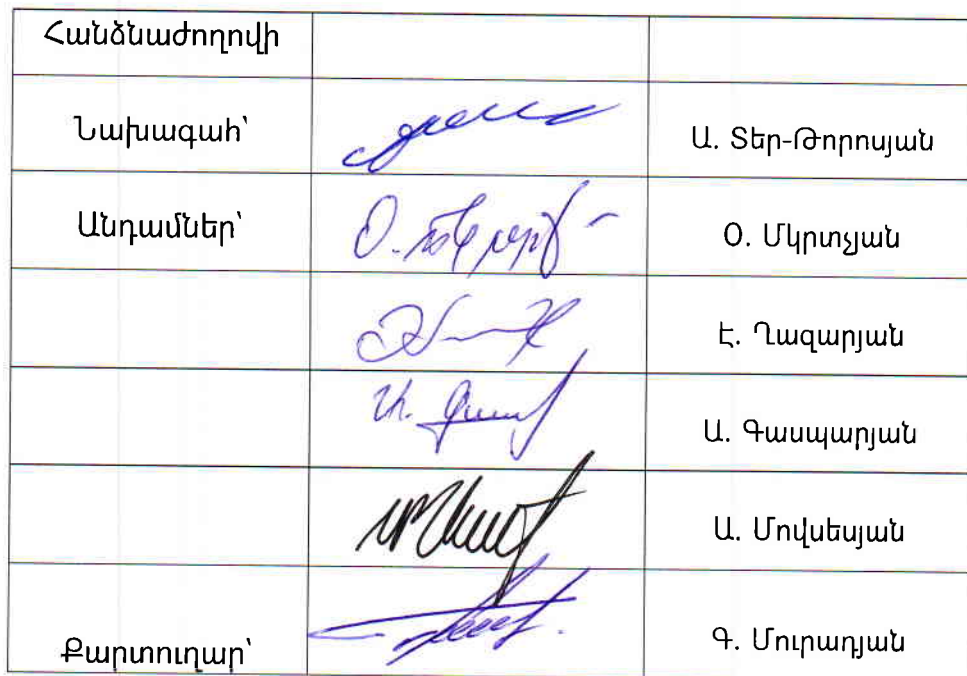 Հանձնաժողովի
Նախագահ՝ Ա. Տեր-Թորոսյան
Անդամներ՝ Օ. Մկրտչյան
Է. Ղազարյան
Ա. Գասպարյան
Ա. Մովսեսյան
Քարտուղար՝ Գ. Մուրադյան